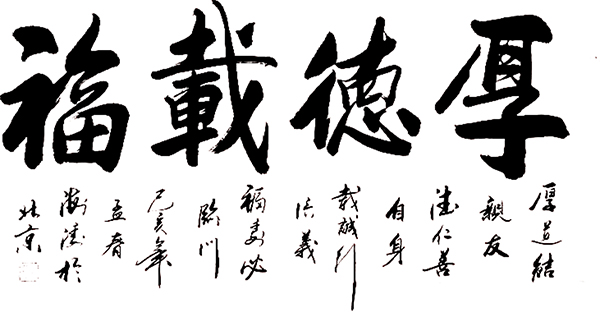 厚德載福
厚道結
親友
德仁善
自身
載誠行
信義
福壽必
臨門
己亥年
孟春
於
北京